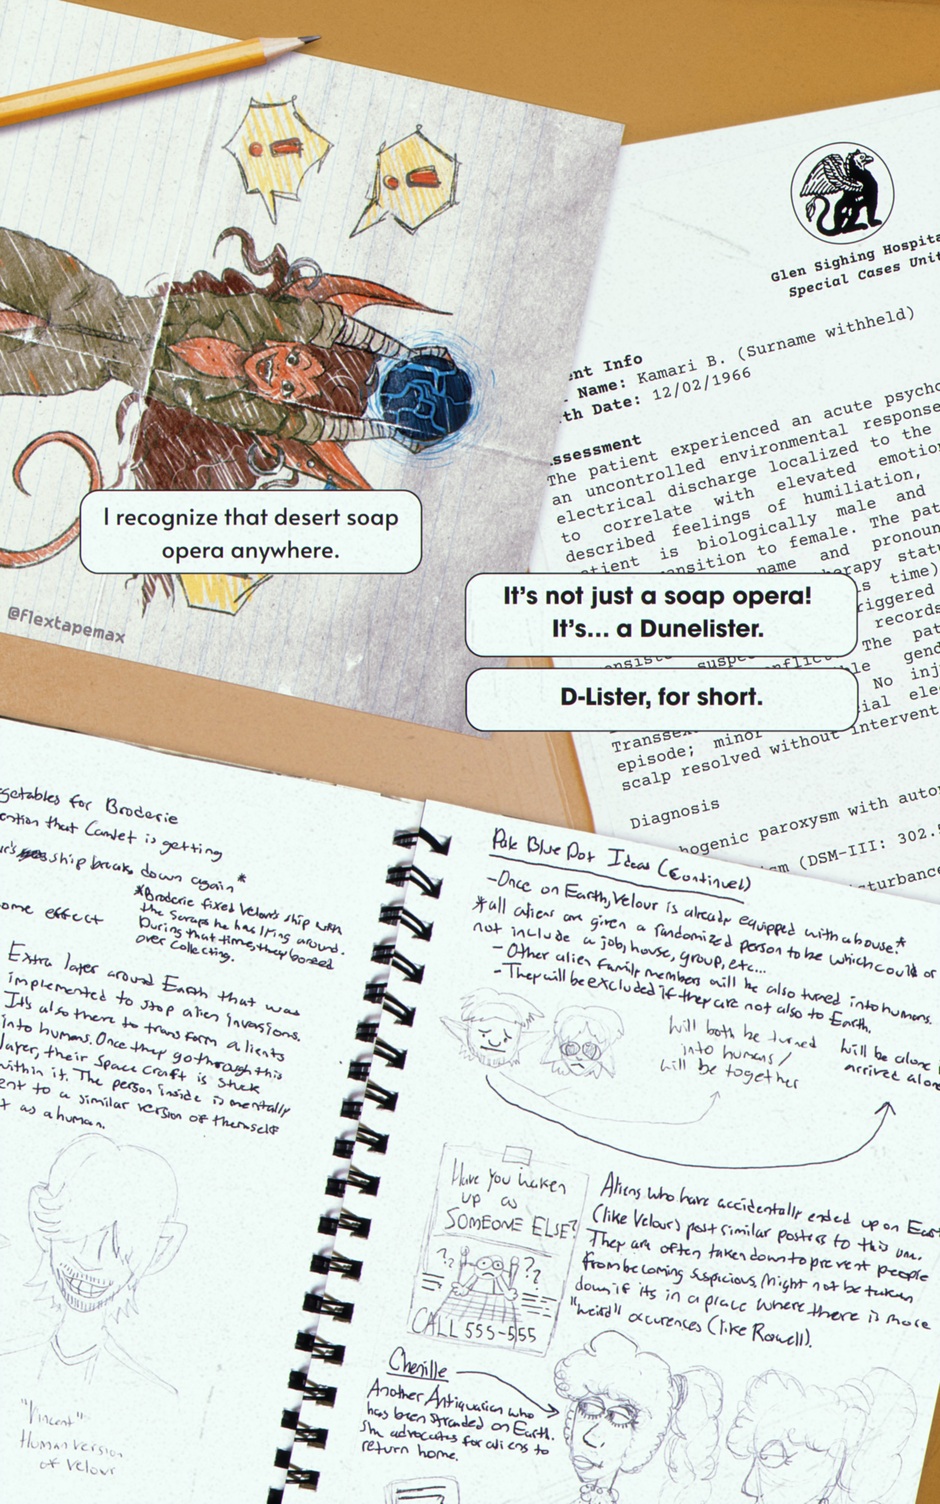 Glen Sighing Hospita
Special Cases Unit
ent Info
Name: Kamari B. (Surname withheld)
th Date: 12/02/1966
ssessment
The patient experienced an acute psycho
an uncontrolled environmental response
electrical discharge localized to the
to correlate with elevated emotion
described feelings of humiliation,
patient is biologically male and
transition to female. The pat
name and pronoun
therapy statu
s time)
riggered
records
suspe conflict. The pat
le gend
No inj
ial ele
Transsex
episode; minor
scalp resolved without intervent
Diagnosis
hogenic paroxysm with auto
sm (DSM-III: 302.5
sturbance
I recognize that desert soap
opera anywhere.
@flextapemax
It's not just a soap opera!
It's... a Dunelister.
D-Lister, for short.
getables for Broderie
ention that Camlet is getting
ur's ship breaks down again*
*Broderie fixed Velour's ship with
the scraps he has lying around.
During that time, they bonded
over collecting.
ome effect
Extra layer around Earth that was
implemented to stop alien invasions.
It's also there to transform aliens
into humans. Once they go through this
layer, their space craft is stuck
within it. The person inside is mentally
sent to a similar version of themself
t as a human.
"Vincent":
Human version
of Velour
Pale Blue Dot Ideas (continued)
-Once on Earth, Velour is already equipped with a house.*
*all aliens are given a randomized person to be which could or
not include a job, house, group, etc...
-Other alien family members will be also turned into humans.
-They will be excluded if they are not also to Earth.
will both be turned
into humans/
will be together
will be alone
arrived alone
Have you waken
up as
SOMEONE ELSE?
??
??
CALL 555-555
Aliens who have accidentally ended up on Eart
(like Velour) post similar posters to this one.
They are often taken down to prevent people
from becoming suspicious. Might not be taken
down if its in a place where there is more
"weird" occurences (like Roswell).
Chenille
Another Antiquarian who
has been stranded on Earth.
She advocates for aliens to
return home.